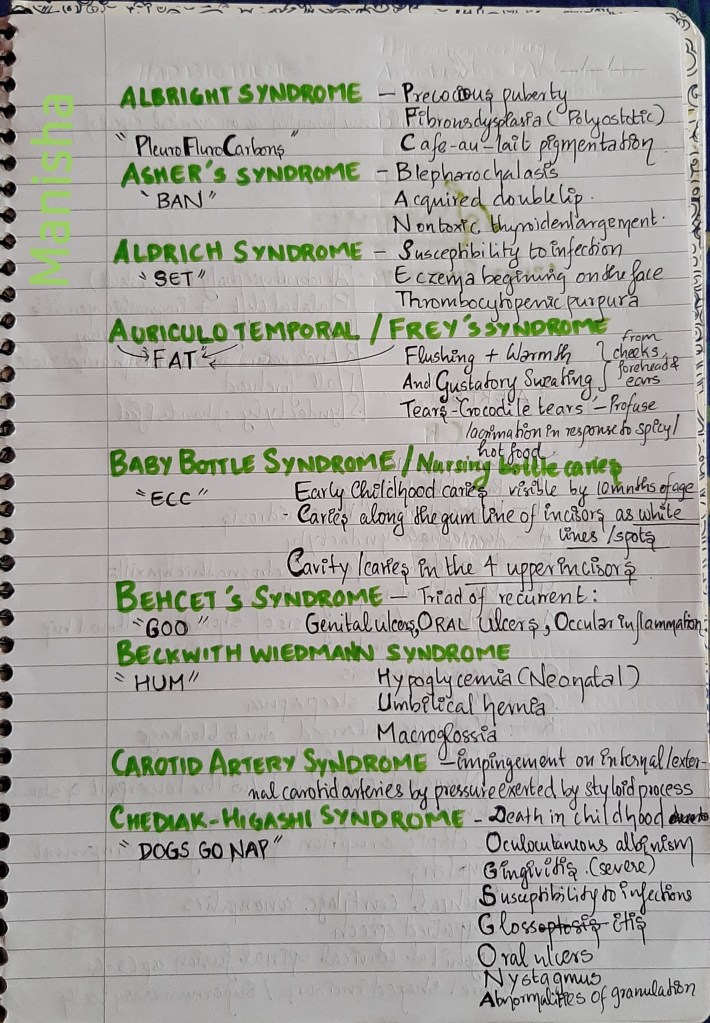 Manisha
ALBRIGHT SYNDROME - Precocious puberty
Fibrousdysplasia (Polyostotic)
"PleuroFluroCarbons" Cafe-au-lait pigmentation
ASHER'S SYNDROME - Blepharochalasis
"BAN" Acquired double lip.
Nontoxic thyroidenlargement.
ALDRICH SYNDROME - Susceptibility to infection
"SET" Eczema begining on the face
Thrombocytopenic purpura
AURICULO TEMPORAL / FREY'S SYNDROME
"FAT" Flushing + Warmth from cheeks,
And Gustatory Sweating forehead & ears
Tears-Crocodile tears - Profuse
lacrimation in response to spicy/
hot food
BABY BOTTLE SYNDROME / Nursing bottle caries
"ECC" Early Childhood caries visible by 10 mnths of age
- Caries along the gum line of incisors as white
lines / spots
Cavity / caries in the 4 upper incisors
BEHCET'S SYNDROME - Triad of recurrent:
"GOO" Genital ulcers, ORAL Ulcers, Occular inflammation.
BECKWITH WIEDMANN SYNDROME
"HUM" Hypoglycemia (Neonatal)
Umbilical hernia
Macroglossia
CAROTID ARTERY SYNDROME - impingement on internal/exter-
nal carotid arteries by pressure exerted by styloid process
CHEDIAK-HIGASHI SYNDROME - Death in childhood
"DOGS GO NAP" Oculocutanous albinism
Gingivitis (severe)
Susceptibility to infections
Glossoptosis itis
Oral ulcers
Nystagmus
Abnormalities of granulation